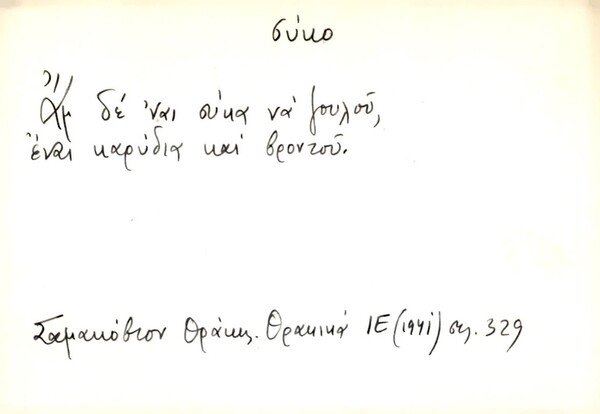 σύκο
Ἄμ δέ 'ναι σύκα νά ζουλοῦ,
ἔναι καρύδια καί βροντοῦ.
Σαμακόβιον Θράκης. Θρακικά ΙΕ (1941) σελ. 329